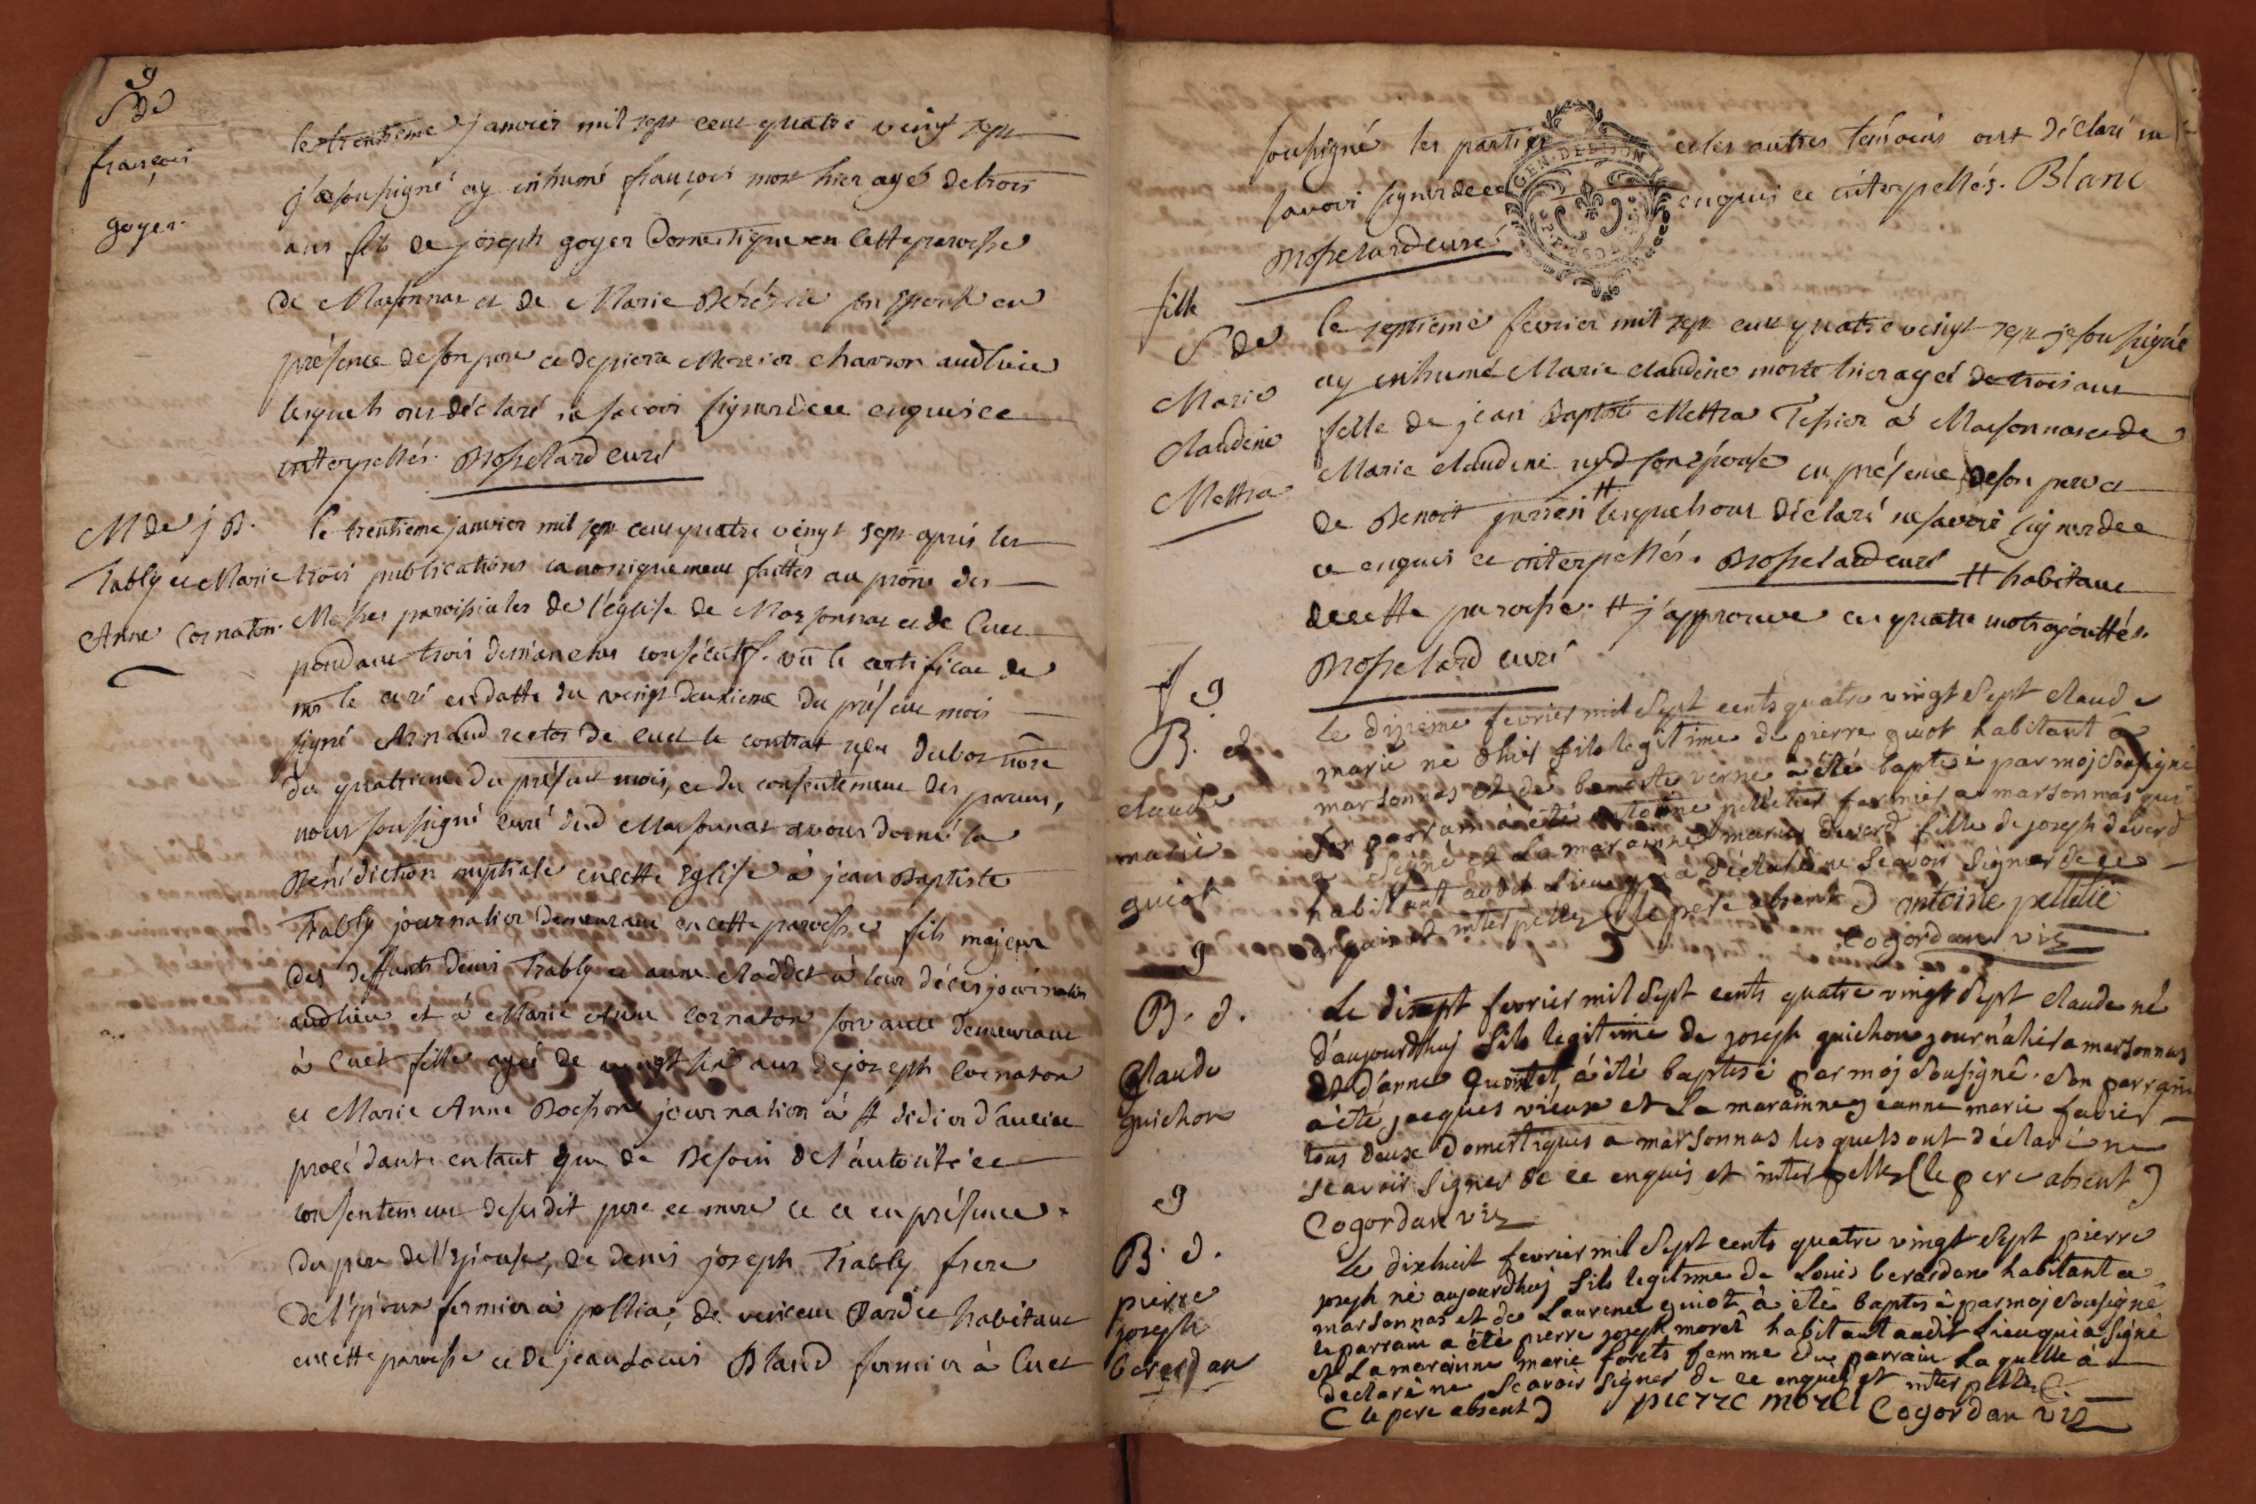 g
S de
françois
goyer.
le trentieme janvier mil sept cent quatre vingt sept
je soussigné ay inhumé françois mort hier agé de trois
ans fils de joseph goyer Domestique en cette paroisse
de Marsonnas et de Marie son Epouse en
présence de son pere et de pierre Mercier charron audt lieu
lesquels ont déclaré ne savoir signer de ce enquis et
interpellés. Mosselard curé
M de j B.
Trably et Marie
Anne Cornaton.
le trentieme janvier mil sept cent quatre vingt sept après les
trois publications canoniquement faittes au prône des
Messes paroissiales de l'église de Marsonnas et de Cuet
pendant trois dimanches consécutifs. vû le certificat de
mr le curé en datte du vingt deuxieme du présent mois
signé Arnaud rector de Cuet le contrat reçu Dubost nore
du quatrieme du présent mois, et du consentement des parens,
nous soussigné curé dud Marsonnas avons donné la
Bénédiction nuptiale en cette Eglise à jean Baptiste
Trably journalier demeurant en cette paroisse fils majeur
des deffunts denis Trably et anne claudet à leur décès journaliers
audt lieu et à Marie Anne Cornaton servante demeurant
à Cuet fille agée de vingt six ans de joseph Cornaton
et Marie Anne Bochon journalier à St didier d'aussiat
procédante en tant que de Besoin de l'autorité et
consentement desesdit pere et mere et ce en présence
du pere de l'Epouse, de denis joseph Trably frere
de l'époux fermier à polliat, de vincent Pardie habitant
en cette paroisse et de jean Louis Bland fermier à Cuet
soussigné les parties et les autres témoins ont déclaré ne
savoir signer de ce enquis et interpellés. Blanc
Mosselard curé
GEN. DE DIJON
fille
S de
Marie
Claudine
Mettra
le septieme fevrier mil sept cent quatre vingt sept je soussigné
ay inhumé Marie claudine morte hier agée de trois ans
fille de jean Baptiste Mettra Tessier à Marsonnas et de
Marie claudine nyd son épouse en présence de son pere et
de Benoit # lesquels ont déclaré ne savoir signer de
ce enquis et interpellés. Mosselard curé # habitant
de cette paroisse. # j'approuve ces quatre mots ajouttés.
Mosselard curé
f g
B. d
claude
marie
guiot
le dixieme fevrier mil Sept cents quatre vingt Sept claude
marie né d'hier fils legitime de pierre guiot habitant a
marsonnas et de benoite verne a été baptisé par moj Sousigné
Son parrain a été antoine pelletier fermier a marsonnas qui
a Signé et La marainne marie deverd fille de joseph deverd
habitant audit Lieu qui a déclaré ne Scavoir Signer de ce
enquis et interpellez (le pere absent) antoine pelletie
Cogordan vic
g
B. d.
Claude
guichon
Le dixsept fevrier mil Sept cents quatre vingt Sept claude né
d'aujourdhuj fils legitime de joseph guichon journalier a marsonnas
et d'anne quontet, a été baptisé par moj Sousigné. Son parrain
a été jacques vieux et La marainne jeanne marie favier
tous deux domestiques a marsonnas lesquels ont déclaré ne
scavoir Signer de ce enquis et interpellez (le pere absent)
Cogordan vic
g
B. d.
pierre
joseph
berardan
Le dixhuit fevrier mil Sept cents quatre vingt Sept pierre
joseph né aujourdhuj fils legitime de Louis berardan habitant a
marsonnas et de Laurence guiot a été baptisé par moj Sousigné
le parrain a été pierre joseph morel habitant audit Lieu qui a Signé
et La marainne marie forets femme du parrain Laquelle a
declaré ne Scavoir Signer de ce enquis et interpellez.
(le pere absent) pierre morel Cogordan vic